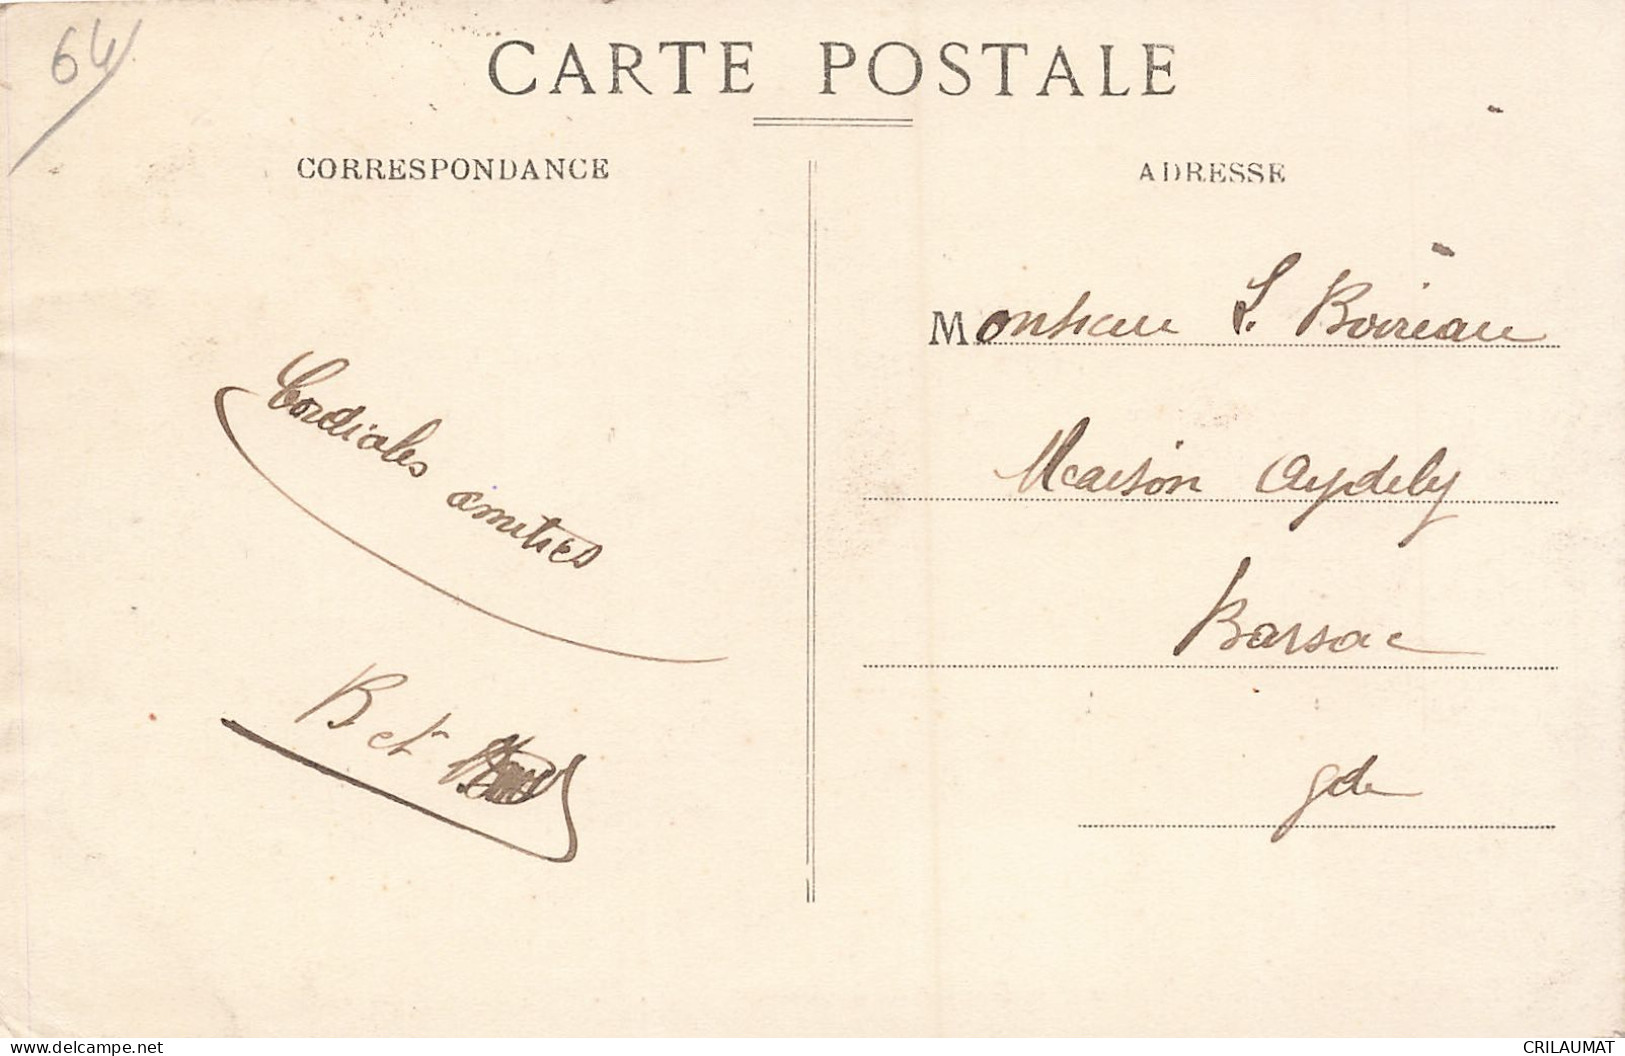 64
CARTE POSTALE
CORRESPONDANCE
ADRESSE
Cordiales amitiés
B et
Monsieur S. Boireau
Maison Aydely
Barsac
gde
www.delcampe.net
CRILAUMAT